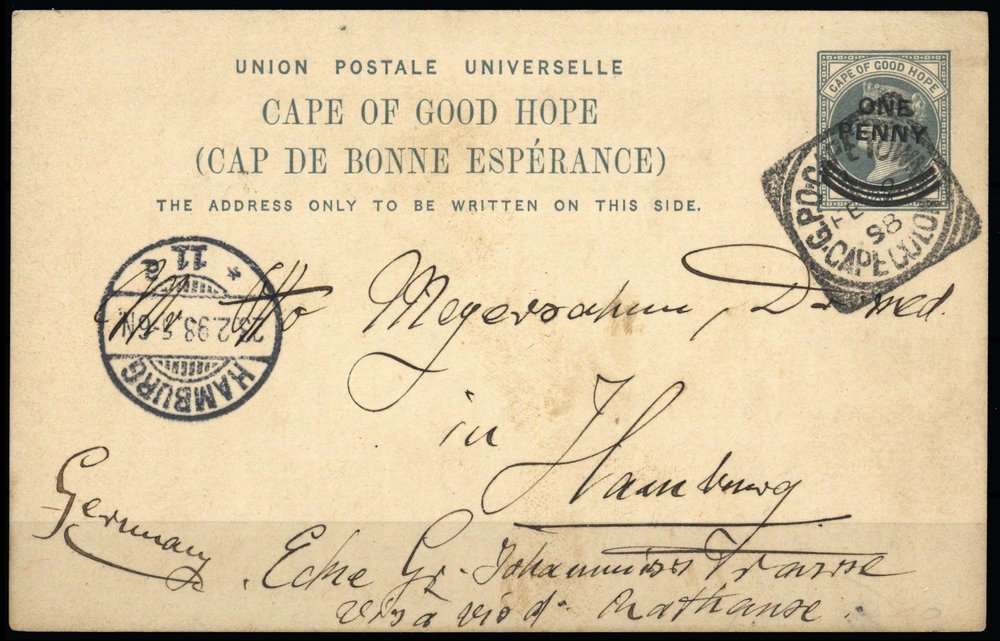 UNION POSTALE UNIVERSELLE
CAPE OF GOOD HOPE
(CAP DE BONNE ESPÉRANCE)
THE ADDRESS ONLY TO BE WRITTEN ON THIS SIDE.
CAPE OF GOOD HOPE
ONE
PENNY
G.P.O. CAPE TOWN
FE
98
CAPE COLO
HAMBURG
2.98. 5-6N.
* 11 a
Otto Meyerschum, Dr med.
in
Hamburg
Germany
Ecke Gr. Johanniss Trasse
vis à vis d. Rathause.